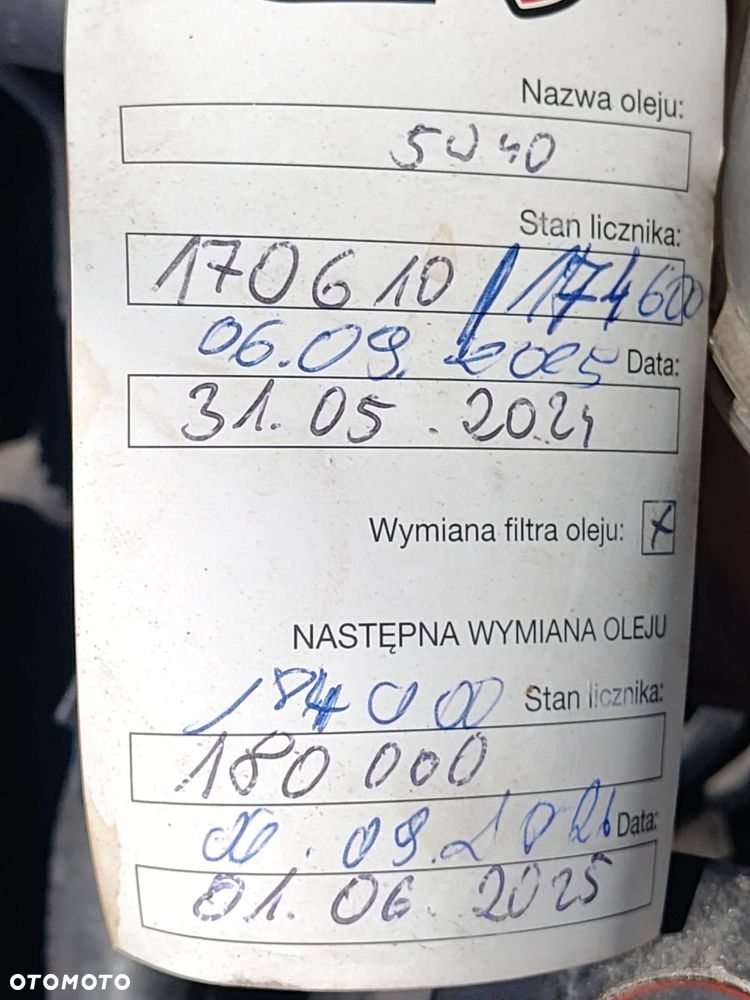 Nazwa oleju:
5W40
Stan licznika:
170610 / 174600
06.09.2025 Data:
31.05.2024
Wymiana filtra oleju: x
NASTĘPNA WYMIANA OLEJU
184000 Stan licznika:
180 000
06.09.2026 Data:
01.06.2025
OTOMOTO